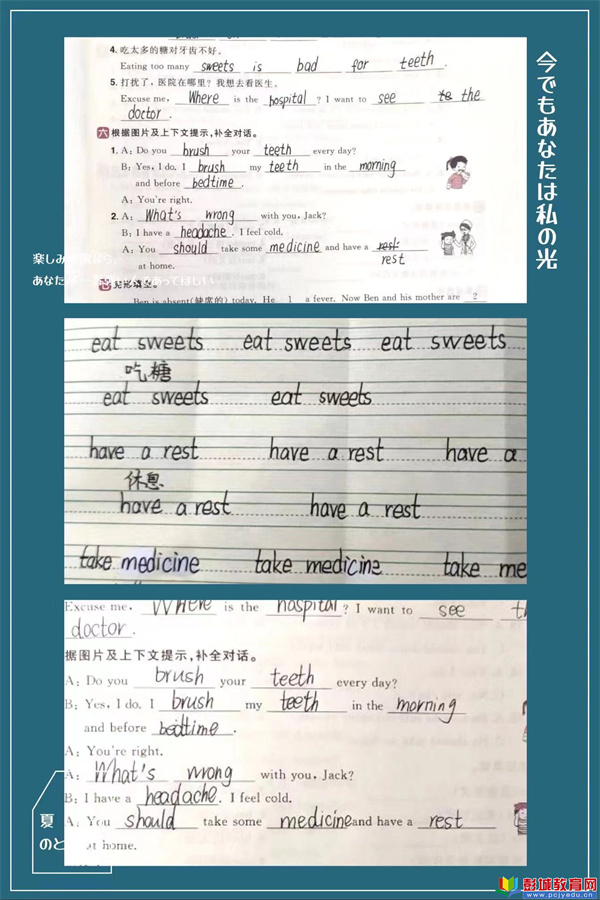 今でもあなたは私の光
4. 吃太多的糖对牙齿不好。
Eating too many sweets is bad for teeth.
5. 打扰了，医院在哪里？我想去看医生。
Excuse me, Where is the hospital? I want to see the
doctor.
六 根据图片及上下文提示，补全对话。
1. A: Do you brush your teeth every day?
B: Yes, I do. I brush my teeth in the morning
and before bedtime.
A: You're right.
2. A: What's wrong with you, Jack?
B: I have a headache. I feel cold.
A: You should take some medicine and have a rest
at home.
楽しみ
あなた
Ben is absent(缺席的) today. He 1 a fever. Now Ben and his mother are 2
eat sweets eat sweets eat sweets
吃糖
eat sweets eat sweets
have a rest have a rest have a
休息
have a rest have a rest
take medicine take medicine take me
Excuse me, Where is the hospital? I want to see th
doctor.
据图片及上下文提示，补全对话。
A: Do you brush your teeth every day?
B: Yes, I do. I brush my teeth in the morning
and before bedtime.
A: You're right.
A: What's wrong with you, Jack?
B: I have a headache. I feel cold.
A: You should take some medicine and have a rest
at home.
夏
のと
彭城教育网
www.pcjyedu.cn